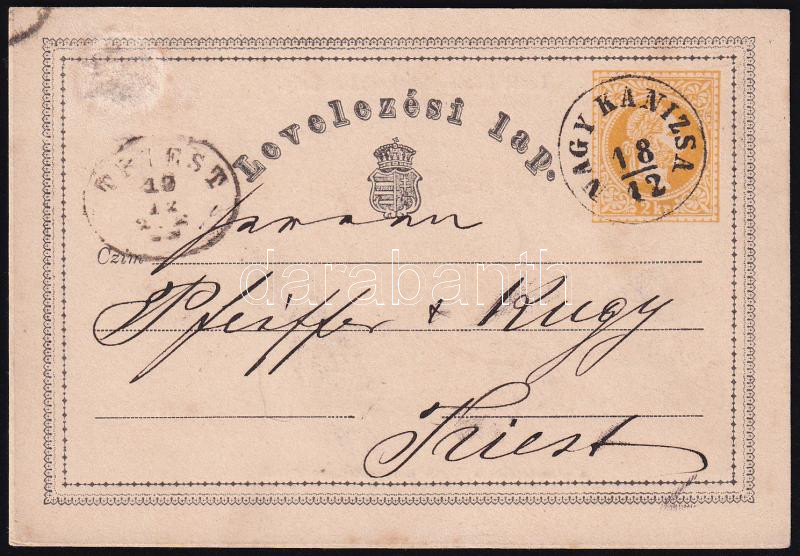 Levelezési lap.
NAGY KANIZSA
18/12
2 kr.
TRIEST
19
12
Herren
Czim
Pfeiffer & Kugy
Triest
darabanth